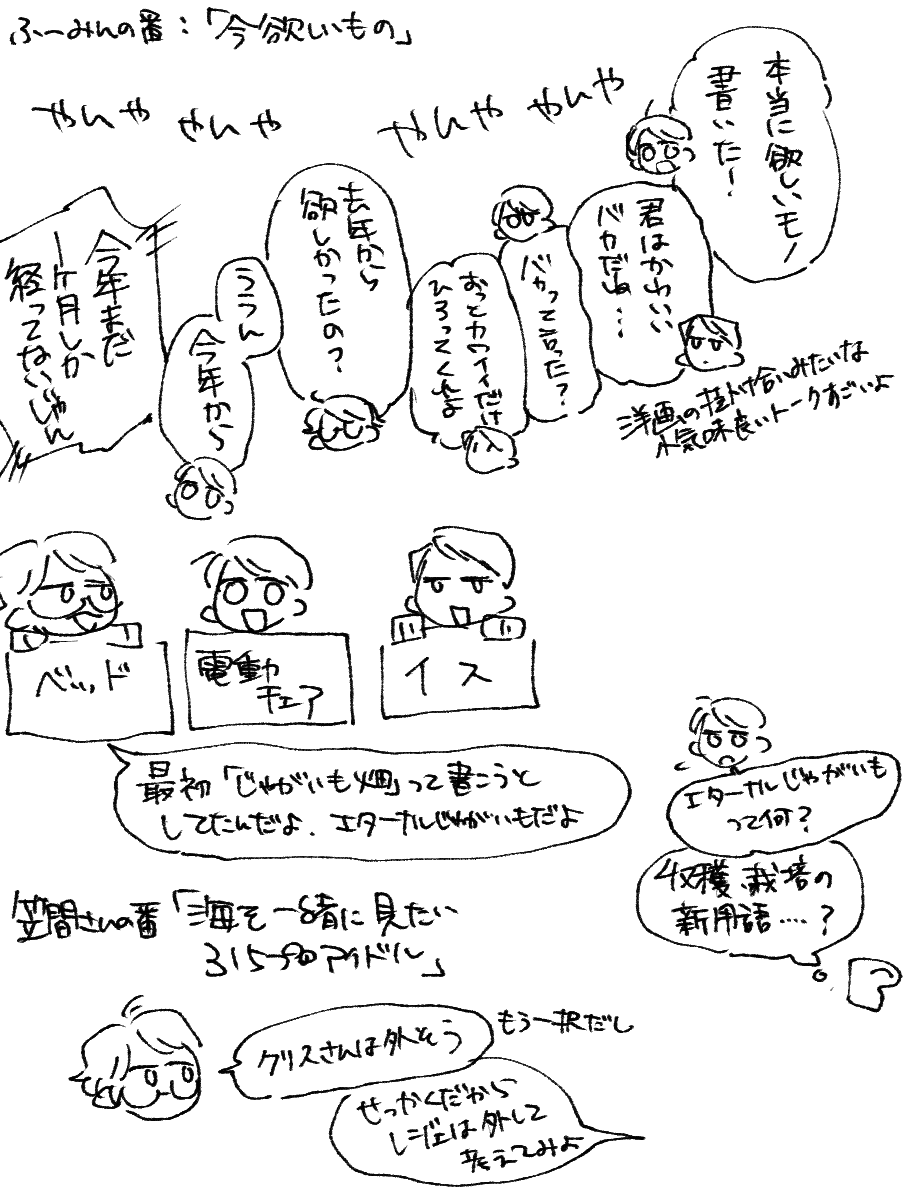 ふーみんの番：「今欲しいもの」
やんや
やんや
やんや
やんや
本当に欲しいモノ
書いた！
君はかわいい
バカだね…
バカって言った？
おっとカワイイだけ
ひろってくれよ
洋画の掛け合いみたいな
小気味良いトークすごいよ
去年から
欲しかったの？
ううん
今年から
今年まだ
一ヶ月しか
経ってないじゃん
ベッド
電動
チェア
イス
最初「じゃがいも畑」って書こうと
してたんだよ、エターナルじゃがいもだよ
エターナルじゃがいも
って何？
収穫、栽培の
新用語……？
笠間さんの番「海を一緒に見たい
315プロアイドル」
クリスさんは外そう
もう一択だし
せっかくだから
レジェは外して
考えてみよ